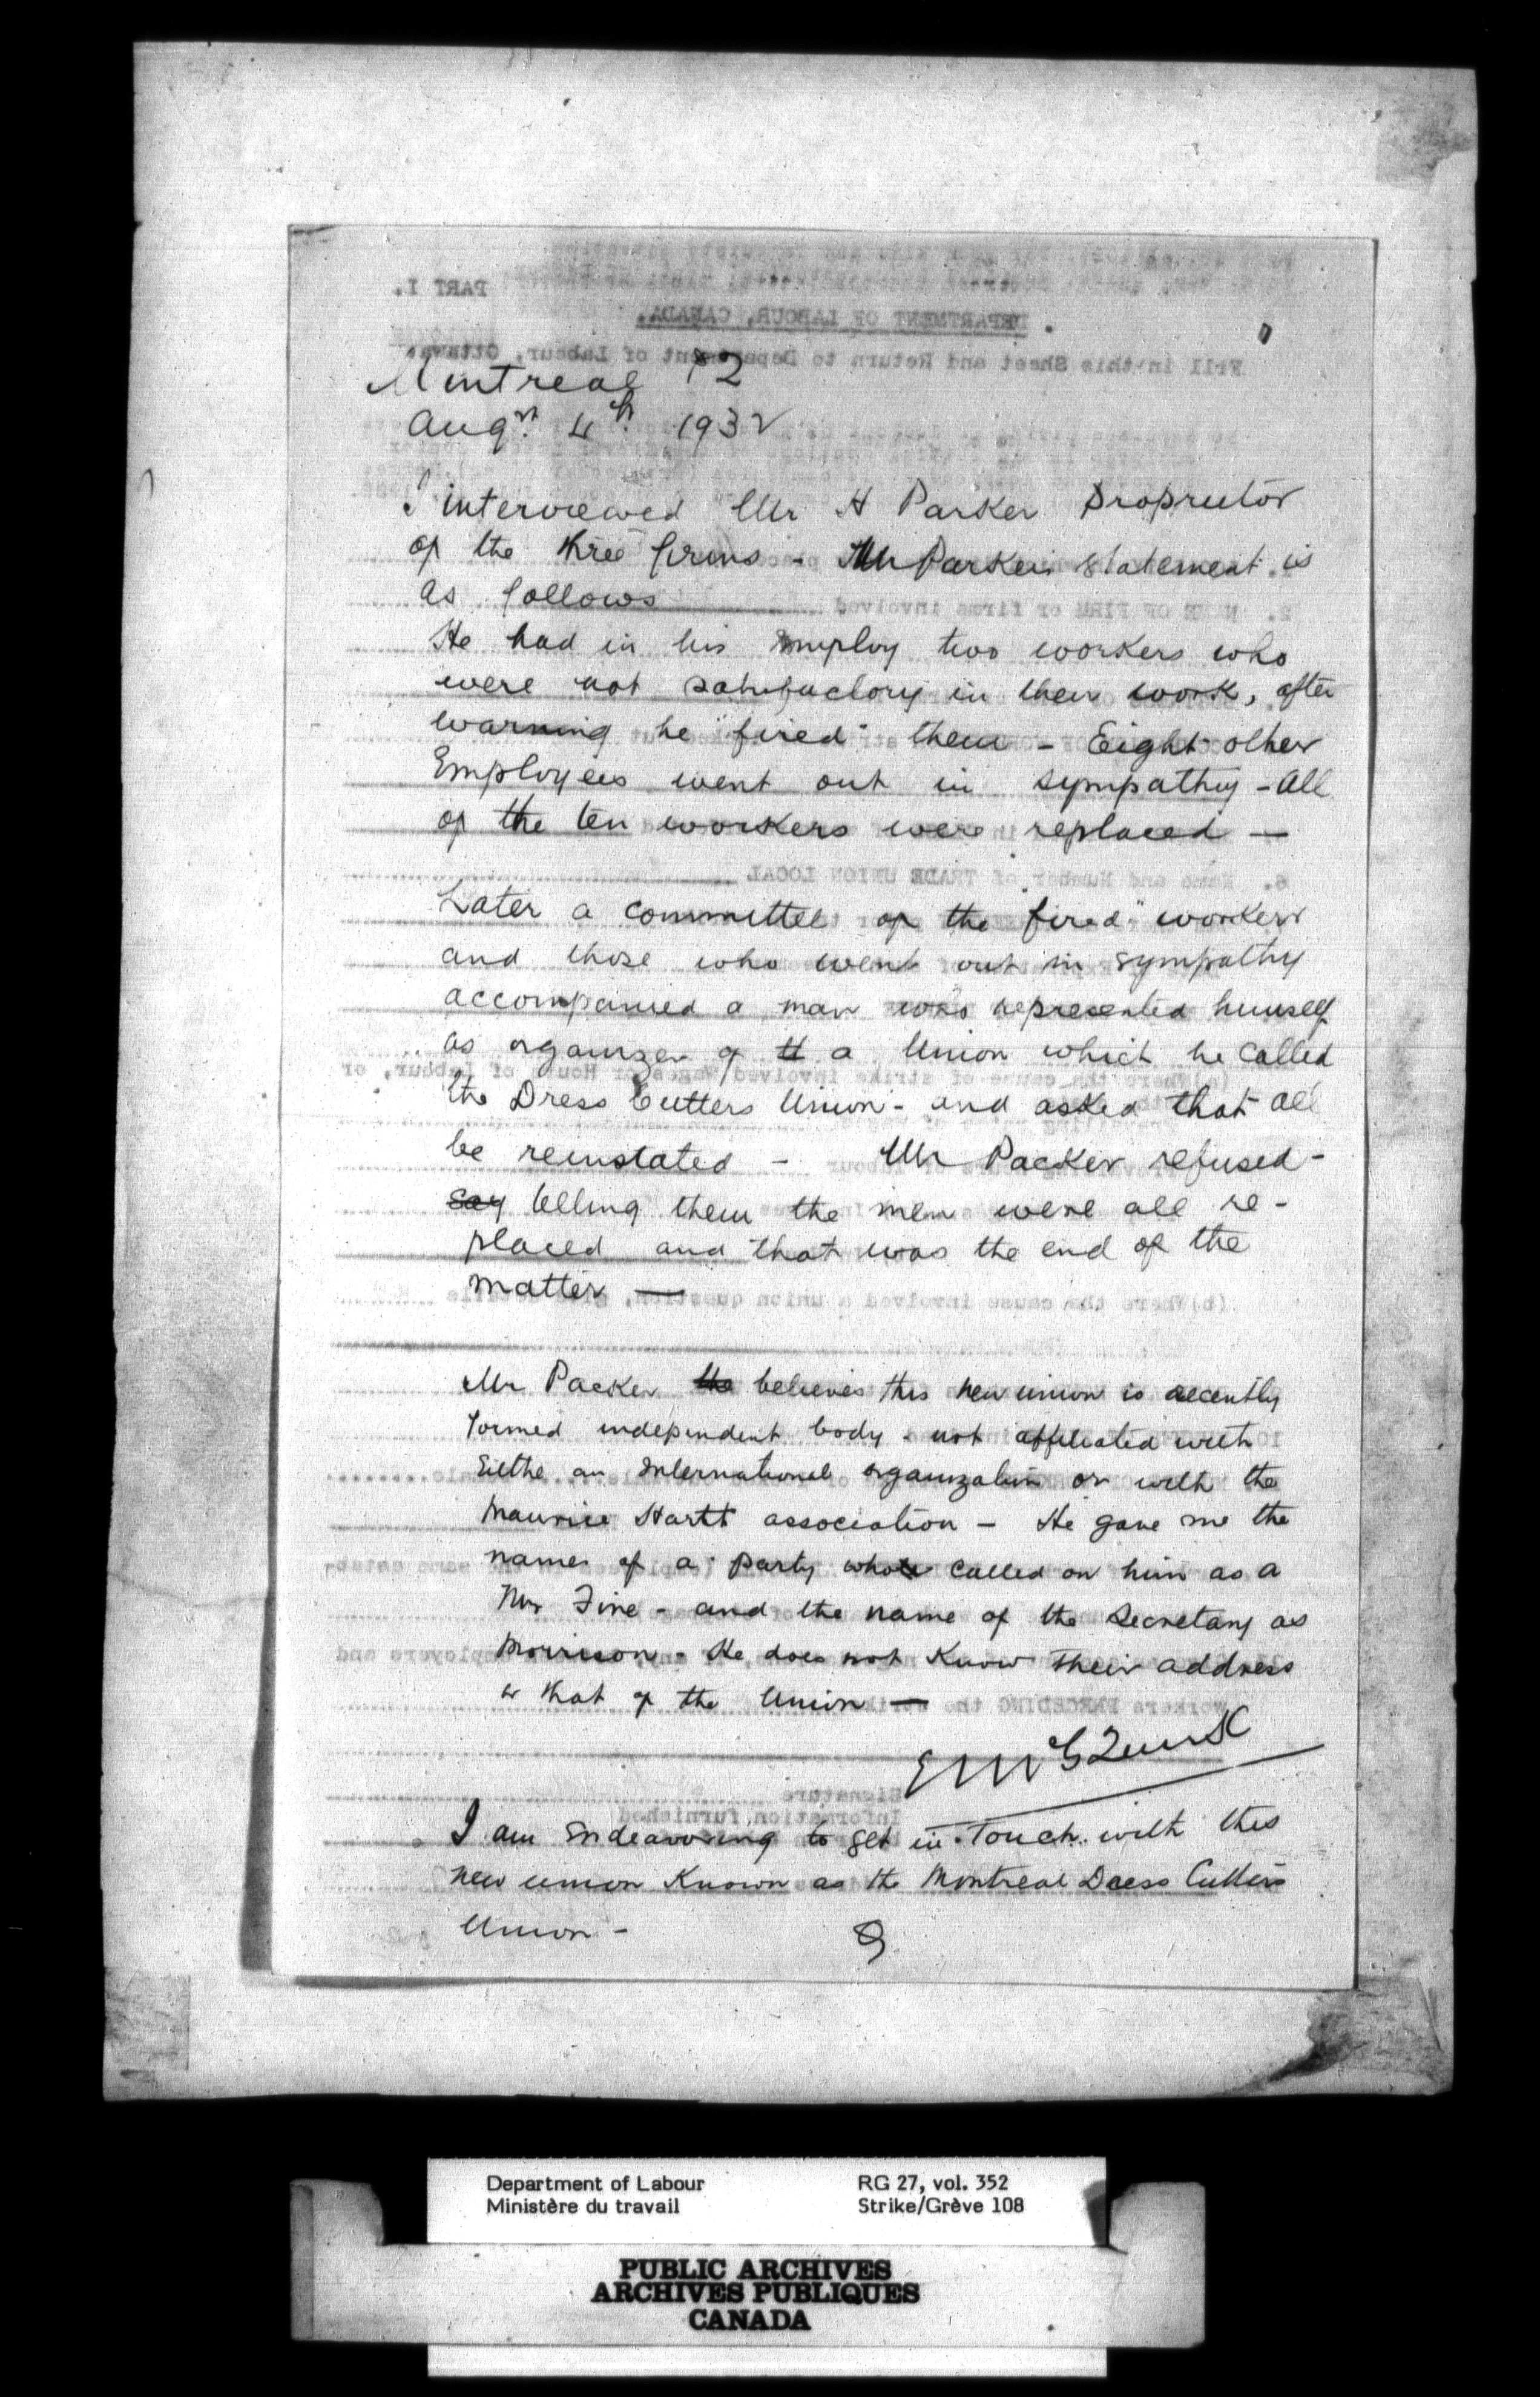 Montreal P2
Augst. 4th. 1932
I interviewed Mr H Parker Proprietor
of the three firms - Mr Parkers statement is
as follows
He had in his employ two workers who
were not satisfactory in their work, after
warning he "fired" them - Eight other
Employees went out in sympathy - All
of the ten workers were replaced —
Later a committee of the "fired" workers
and those who went out in sympathy
accompanied a man who represented himself
as organizer of a Union which he called
the Dress Cutters Union - and asked that all
be reinstated - Mr Packer refused -
say telling them the men were all re-
placed and that was the end of the
matter —
Mr Packer the believes this new union is recently
formed independent body - not affiliated with
Eithe an International organization or with the
Maurice Hartt association - He gave me the
names of a party who called on him as a
Mr Fine - and the name of the Secretary as
Morrison - He does not know their address
or that of the Union —
I am Endeavoring to get in Touch with this
new union Known as the Montreal Dress Cutters
Union -
PART I.
DEPARTMENT OF LABOUR, CANADA.
Fill in this Sheet and Return to Department of Labour, Ottawa.
2. NAME OF FIRM or firms involved
6. Name and Number of TRADE UNION LOCAL
(b) Where the cause involved a union question, give details
workers PRECEDING the strike
Signature
Information furnished
Department of Labour RG 27, vol. 352
Ministère du travail Strike/Grève 108
PUBLIC ARCHIVES
ARCHIVES PUBLIQUES
CANADA